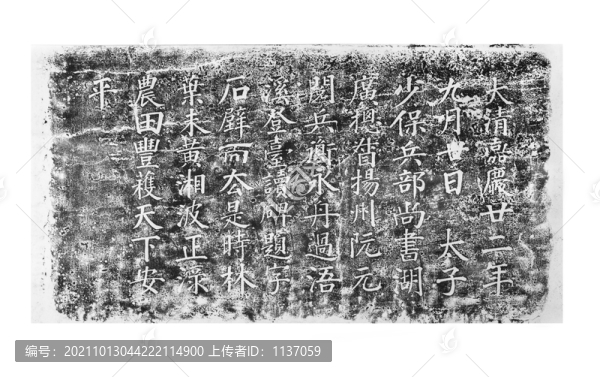 大清嘉慶廿二年
九月廿日 太子
少保兵部尚書湖
廣總督揚州阮元
閱兵衡永舟過浯
溪登臺讀碑題字
石壁而去是時林
葉未黃湘波正淥
農田豐穫天下安
平
编号：20211013044222114900 上传者ID：1137059